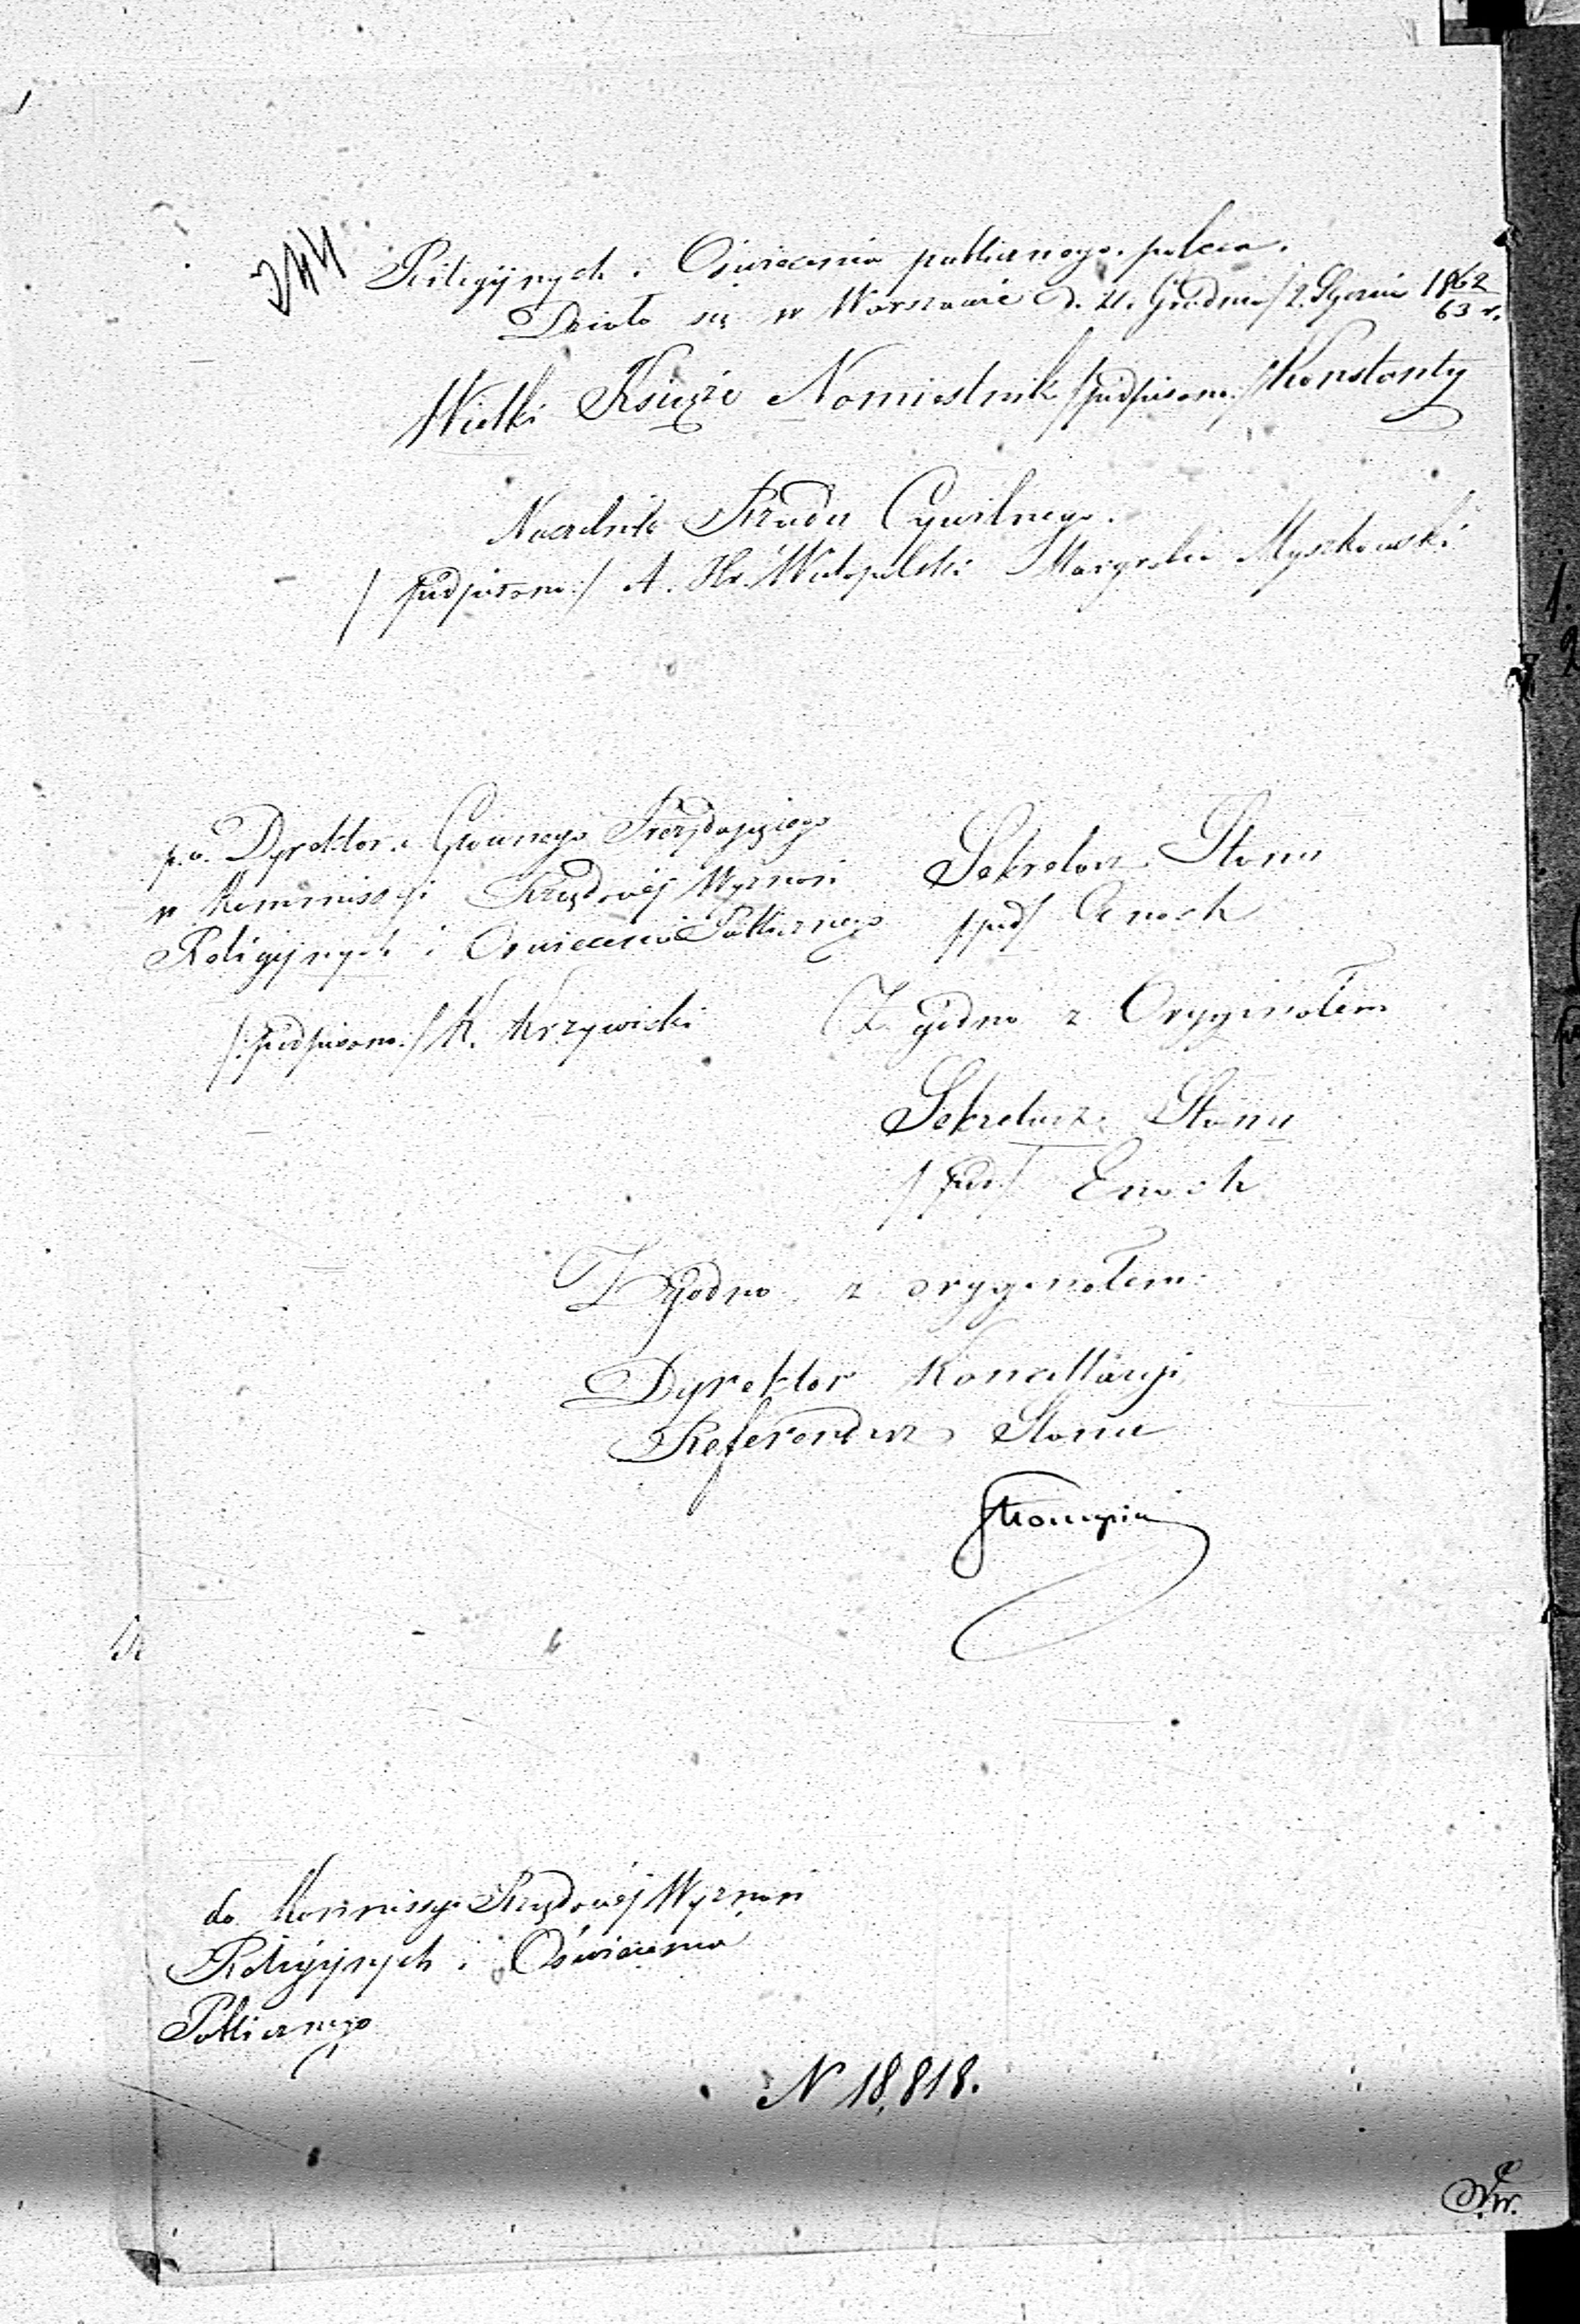 244
Religijnych i Oświecenia publicznego poleca.
Działo się w Warszawie d. 21 Grudnia/2 Stycznia 1862/63 r.
Wielki Książe Namiestnik /podpisano:/ Konstanty
Naczelnik Rządu Cywilnego.
/podpisano:/ A. Hr. Wielopolski Margrabia Myszkowski
p.o. Dyrektora Głównego Prezydującego
w Kommissyi Rządowéj Wyznań
Religijnych i Oświecenia Publicznego
/:podpisano:/ K. Krzywicki
Sekretarz Stanu
/pod/ Enoch
Zgodno z Oryginałem
Sekretarz Stanu
/pod/ Enoch
Zgodno z oryginałem
Dyrektor Kancellaryi
Referendarz Stanu
do Kommissyi Rządowéj Wyznań
Religijnych i Oświecenia
Publicznego
N 18,818.